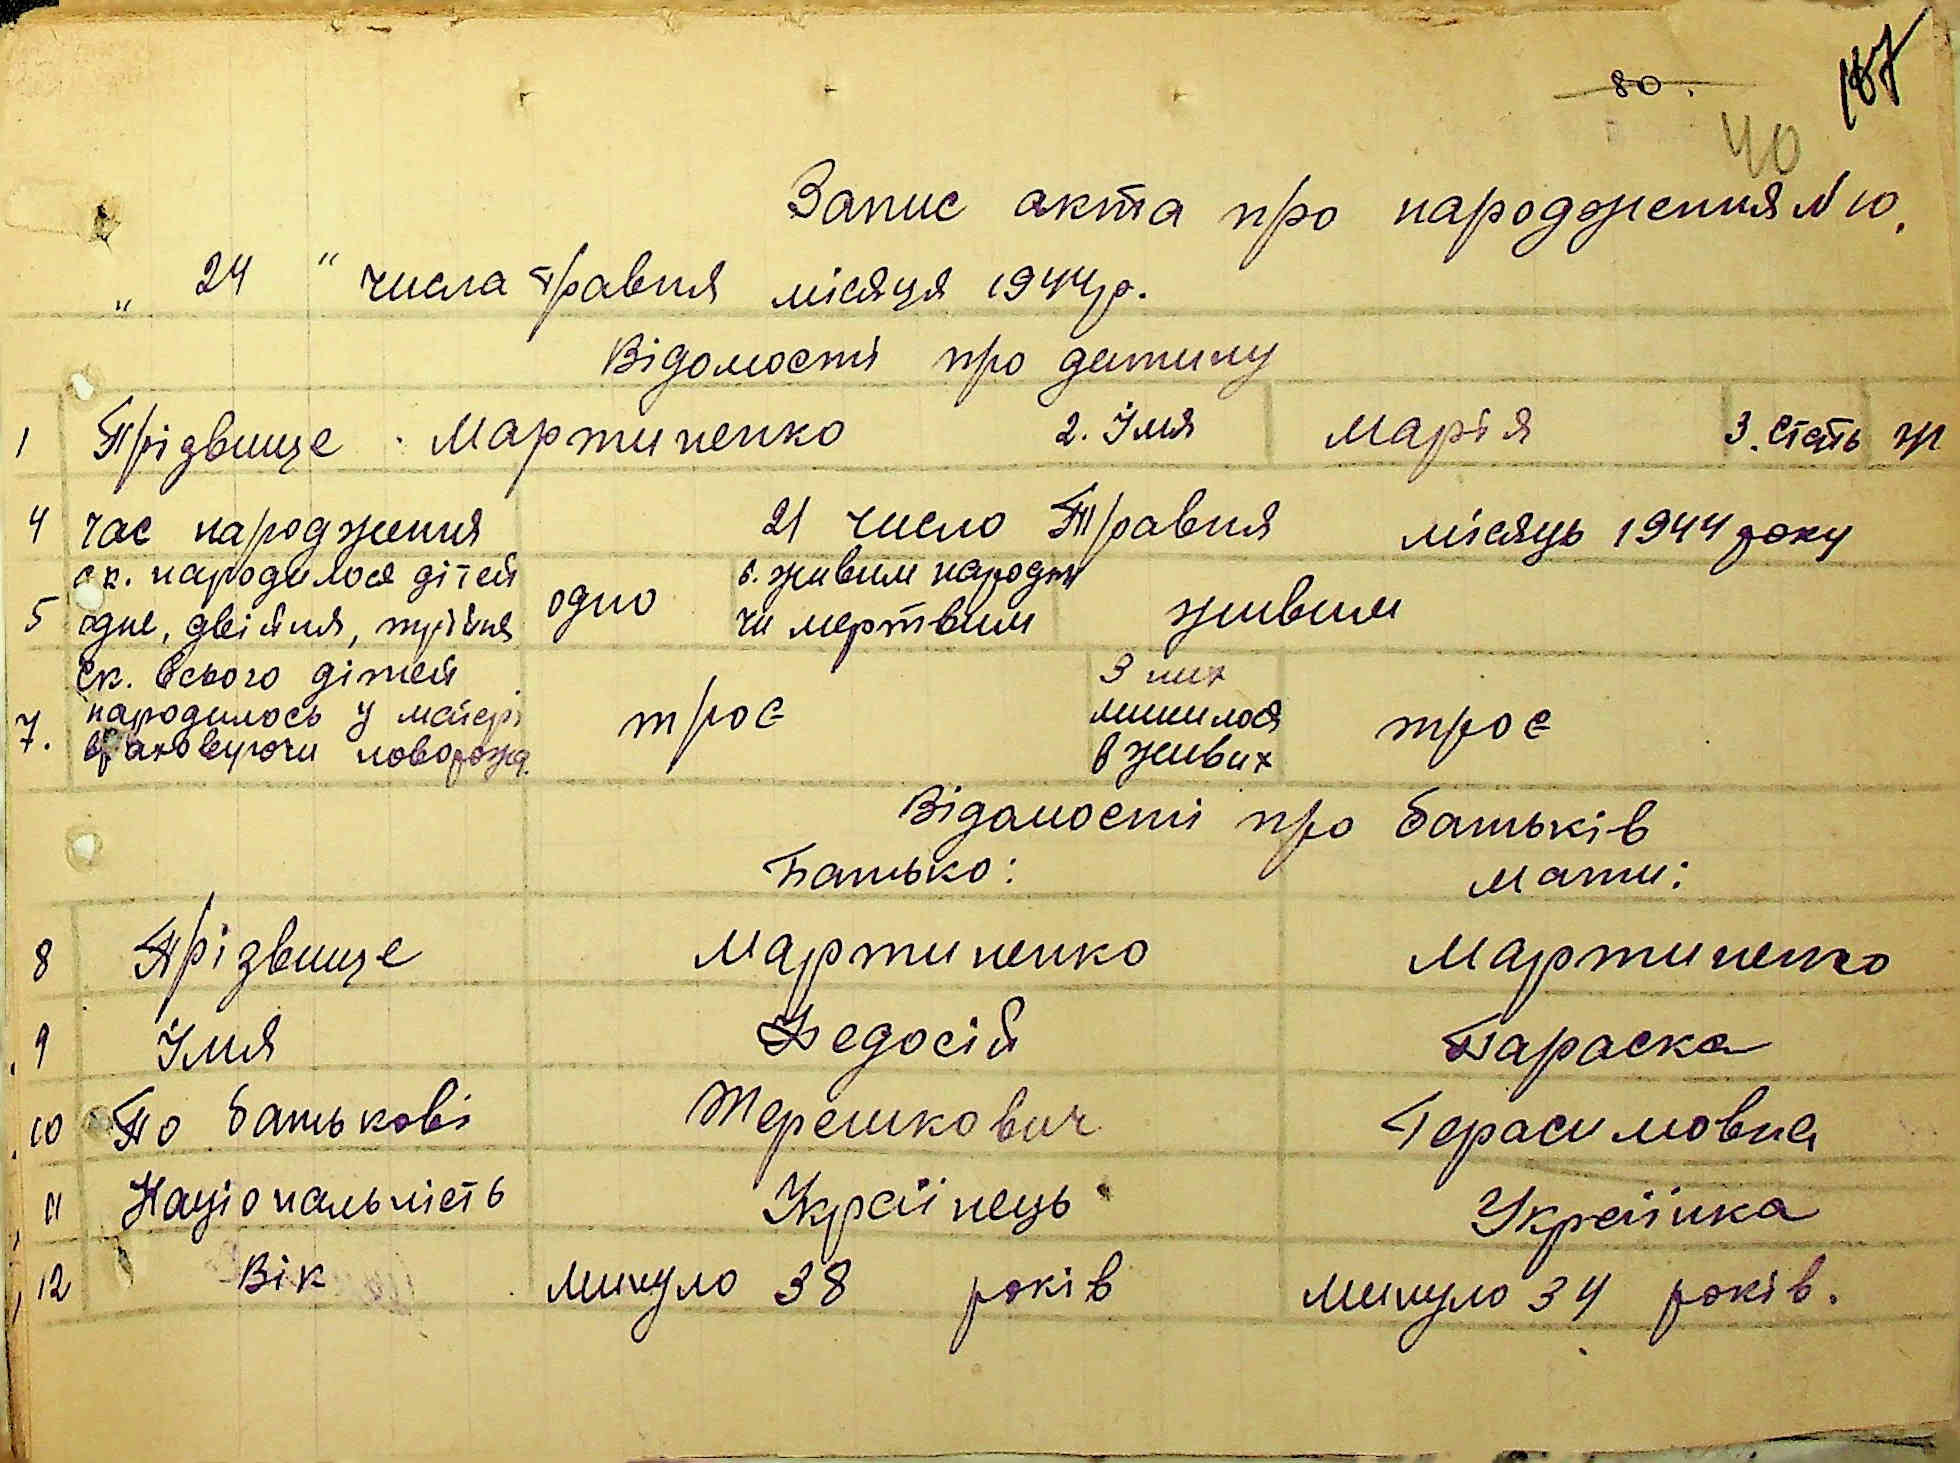 80.
187
40
Запис акта про народження № 10.
" 24 " числа травня місяця 1944 р.
Відомості про дитину
1 Прізвище Мартиненко 2. Імя Марія 3. Стать ж
4 час народження 21 число Травня місяць 1944 року
ск. народилося дітей
5 одне, двійня, трійня одно
6. живим народж.
чи мертвим живим
ск. всього дітей
народилось у матері
7. враховуючи новорожд. троє
З них
лишилося
в живих троє
Відомості про батьків
Батько: мати:
8 Прізвище Мартиненко Мартиненко
9 Імя Федосій Параска
10 По батькові Терешкович Герасимовна
11 Національність Українець Українка
12 Вік минуло 38 років минуло 34 років.